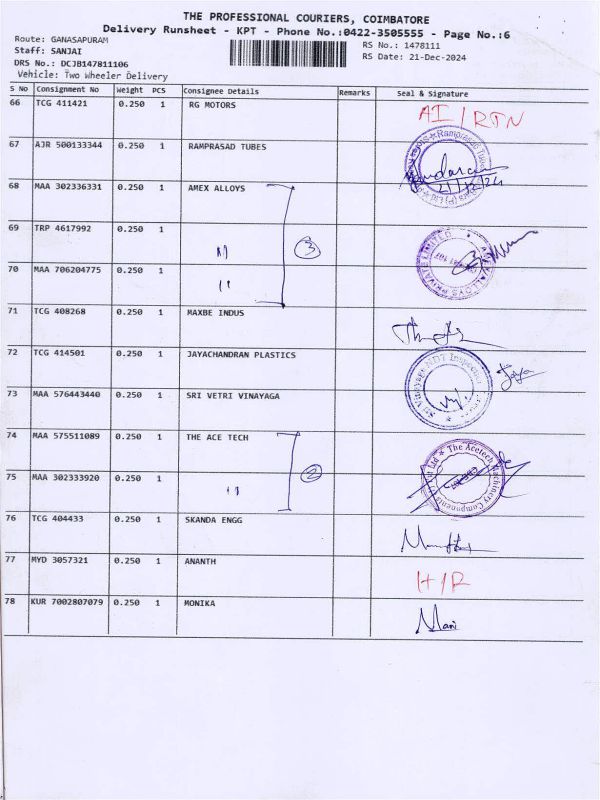 THE PROFESSIONAL COURIERS, COIMBATORE
Delivery Runsheet - KPT - Phone No.:0422-3505555 - Page No.:6
Route: GANASAPURAM
RS No.: 1478111
Staff: SANJAI
RS Date: 21-Dec-2024
DRS No.: DCJB147811106
Vehicle: Two Wheeler Delivery
S No Consignment No Weight PCS Consignee Details Remarks Seal & Signature
66 TCG 411421 0.250 1 RG MOTORS AI / RTN
67 AJR 500133344 0.250 1 RAMPRASAD TUBES
Ramprasad Tubes
21/12/24
68 MAA 302336331 0.250 1 AMEX ALLOYS
69 TRP 4617992 0.250 1 " 3
ALLOYS PRIVATE LIMITED
70 MAA 706204775 0.250 1 "
71 TCG 408268 0.250 1 MAXBE INDUS
72 TCG 414501 0.250 1 JAYACHANDRAN PLASTICS Jaya
Sri Vinayaga NDT Inspection
73 MAA 576443440 0.250 1 SRI VETRI VINAYAGA
74 MAA 575511089 0.250 1 THE ACE TECH
The Acetech Machinery Components (P) Ltd
75 MAA 302333920 0.250 1 " 2
76 TCG 404433 0.250 1 SKANDA ENGG
77 MYD 3057321 0.250 1 ANANTH H/R
78 KUR 7002807079 0.250 1 MONIKA Mani